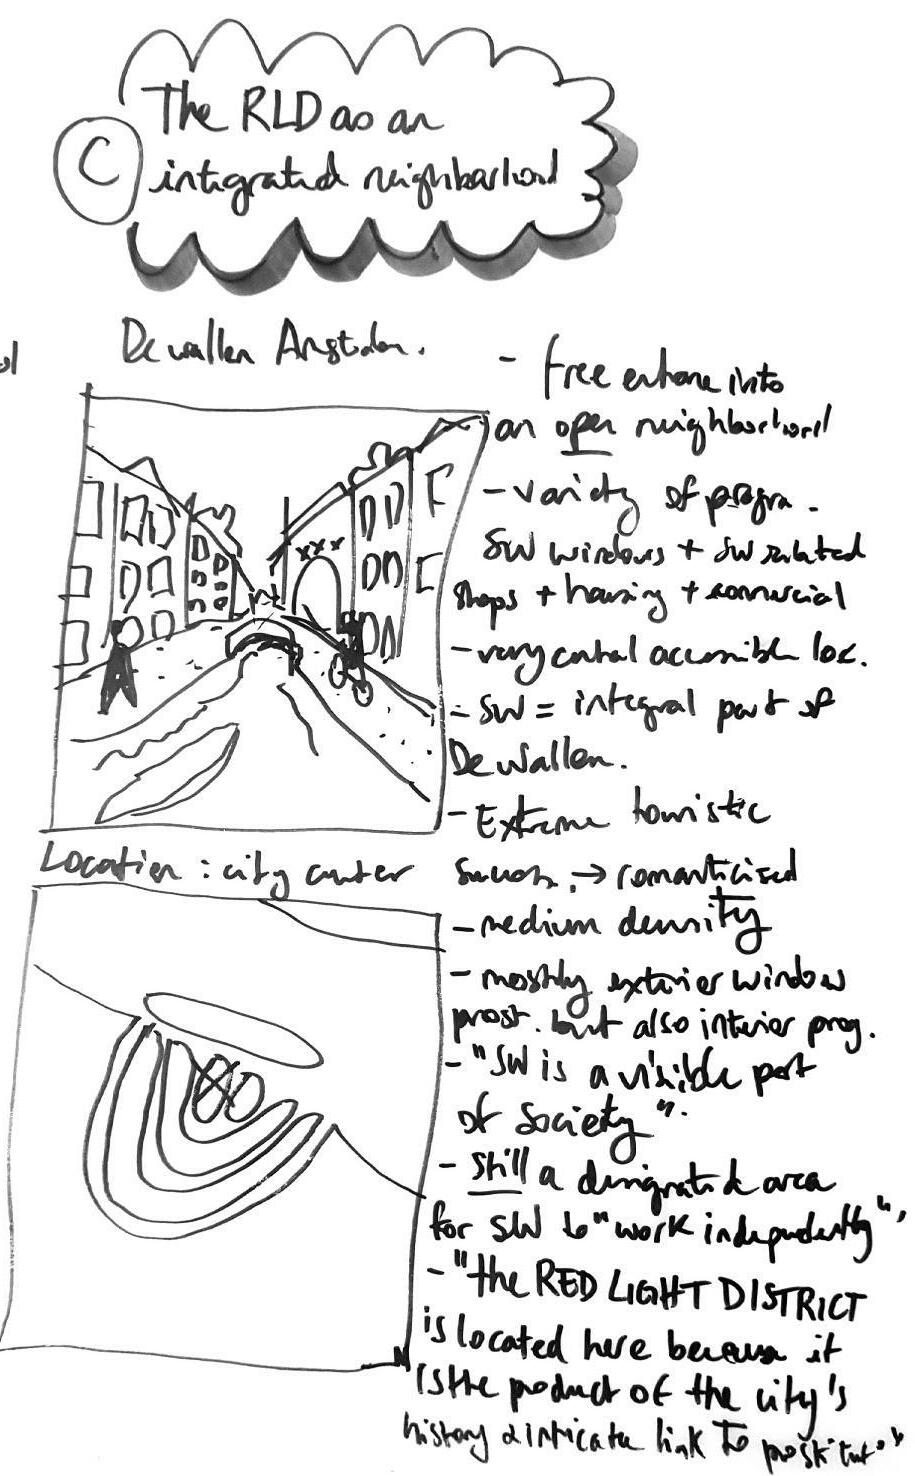 C
The RLD as an
integrated neighborhood
De wallen Amsterdam.
xxx
Location : city center
- free entrance into
an open neighborhood
- variety of progra.
SW windows + SW related
shops + housing + commercial
- very central accessible loc.
- SW = integral part of
De Wallen.
- Extreme touristic
success. → romanticised
- medium density
- mostly exterior window
prost. but also interior prog.
- "SW is a visible part
of society".
- still a designated area
for SW to "work independently",
- "the RED LIGHT DISTRICT
is located here because it
is the product of the city's
history & intricate link to